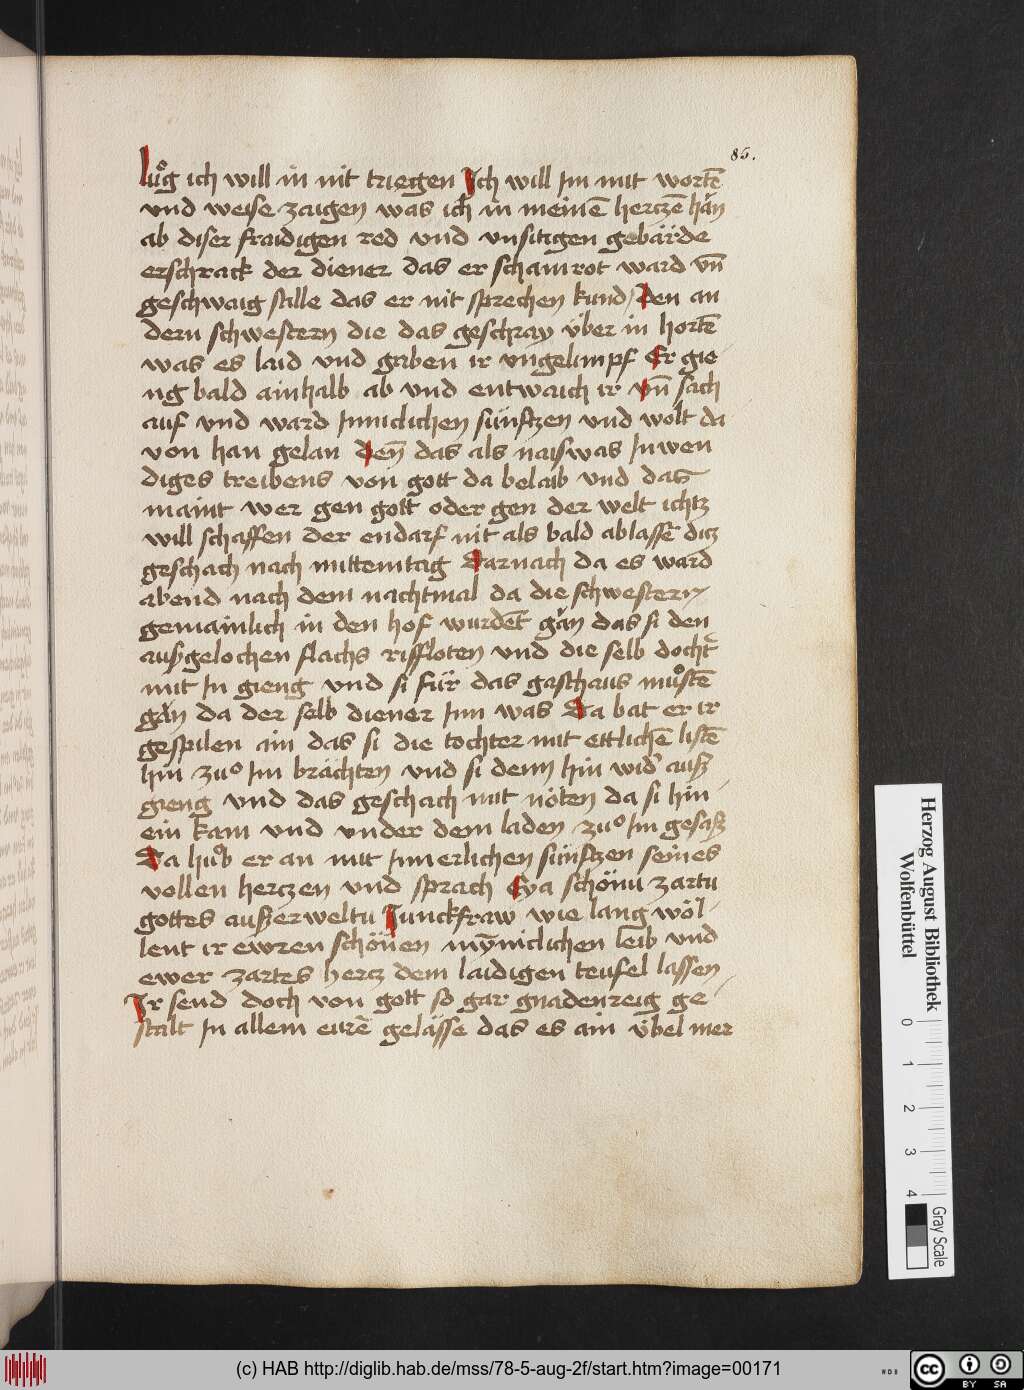 85.
luͦg ich will in nit triegen Ich will Im mit worte᷑
vnd weise zaigen was ich in meinē herczē hän
ab diser fraidigen red vnd vnsitigen gebärde
erschrack der diener das er schamrot ward vn̄
geschwaig stille das er nit sprechen kund / Den an
dern schwestern die das geschray über in hortē
was es laid vnd gaben ir vngelimpf Er gie
ng bald ainhalb ab vnd entwaich ir vn̄ sach
auf vnd ward Inniclichen sünftzen vnd wolt da
von han gelan den̄ das als naiswas Inwen
diges treibens von gott da belaib vnd das
maint wer gen gott oder gen der welt ichtz
will schaffen der endarf nit als bald ablassē dicz
geschach nach mittemtag Darnach da es ward
abend nach dem nachtmal da die schwestern
gemainlich in den hof wurdēt gän das si den
außgelochen flachs riffloten vnd die selb docht̄
mit In gieng vnd si für das gasthaus muͦstē
gän da der selb diener Inn was Da bat er ir
gespilen ain das si die tochter mit ettlichē listē
hin zuͦ Im brächten vnd si denn hin wid̄ auß
gieng vnd das geschach mit nöten da si hin
ein kam vnd vnder dem laden zuͦ Im gesaß
Da huͦb er an mit Innerlichen sünftzen seines
vollen herczen vnd sprach Eya schönu zartu
gottes außerweltu Junckfraw wie lang wöl
lent ir ewren schönen mÿniclichen leib vnd
ewer zartes hercz dem laidigen teufel lassen
Ir send doch von gott so gar gnadenreig ge
stalt In allem eurē gelässe das es ain übel mer
Herzog August Bibliothek
Wolfenbüttel
0 1 2 3 4
Gray Scale
(c) HAB http://diglib.hab.de/mss/78-5-aug-2f/start.htm?image=00171
WDB
cc BY SA